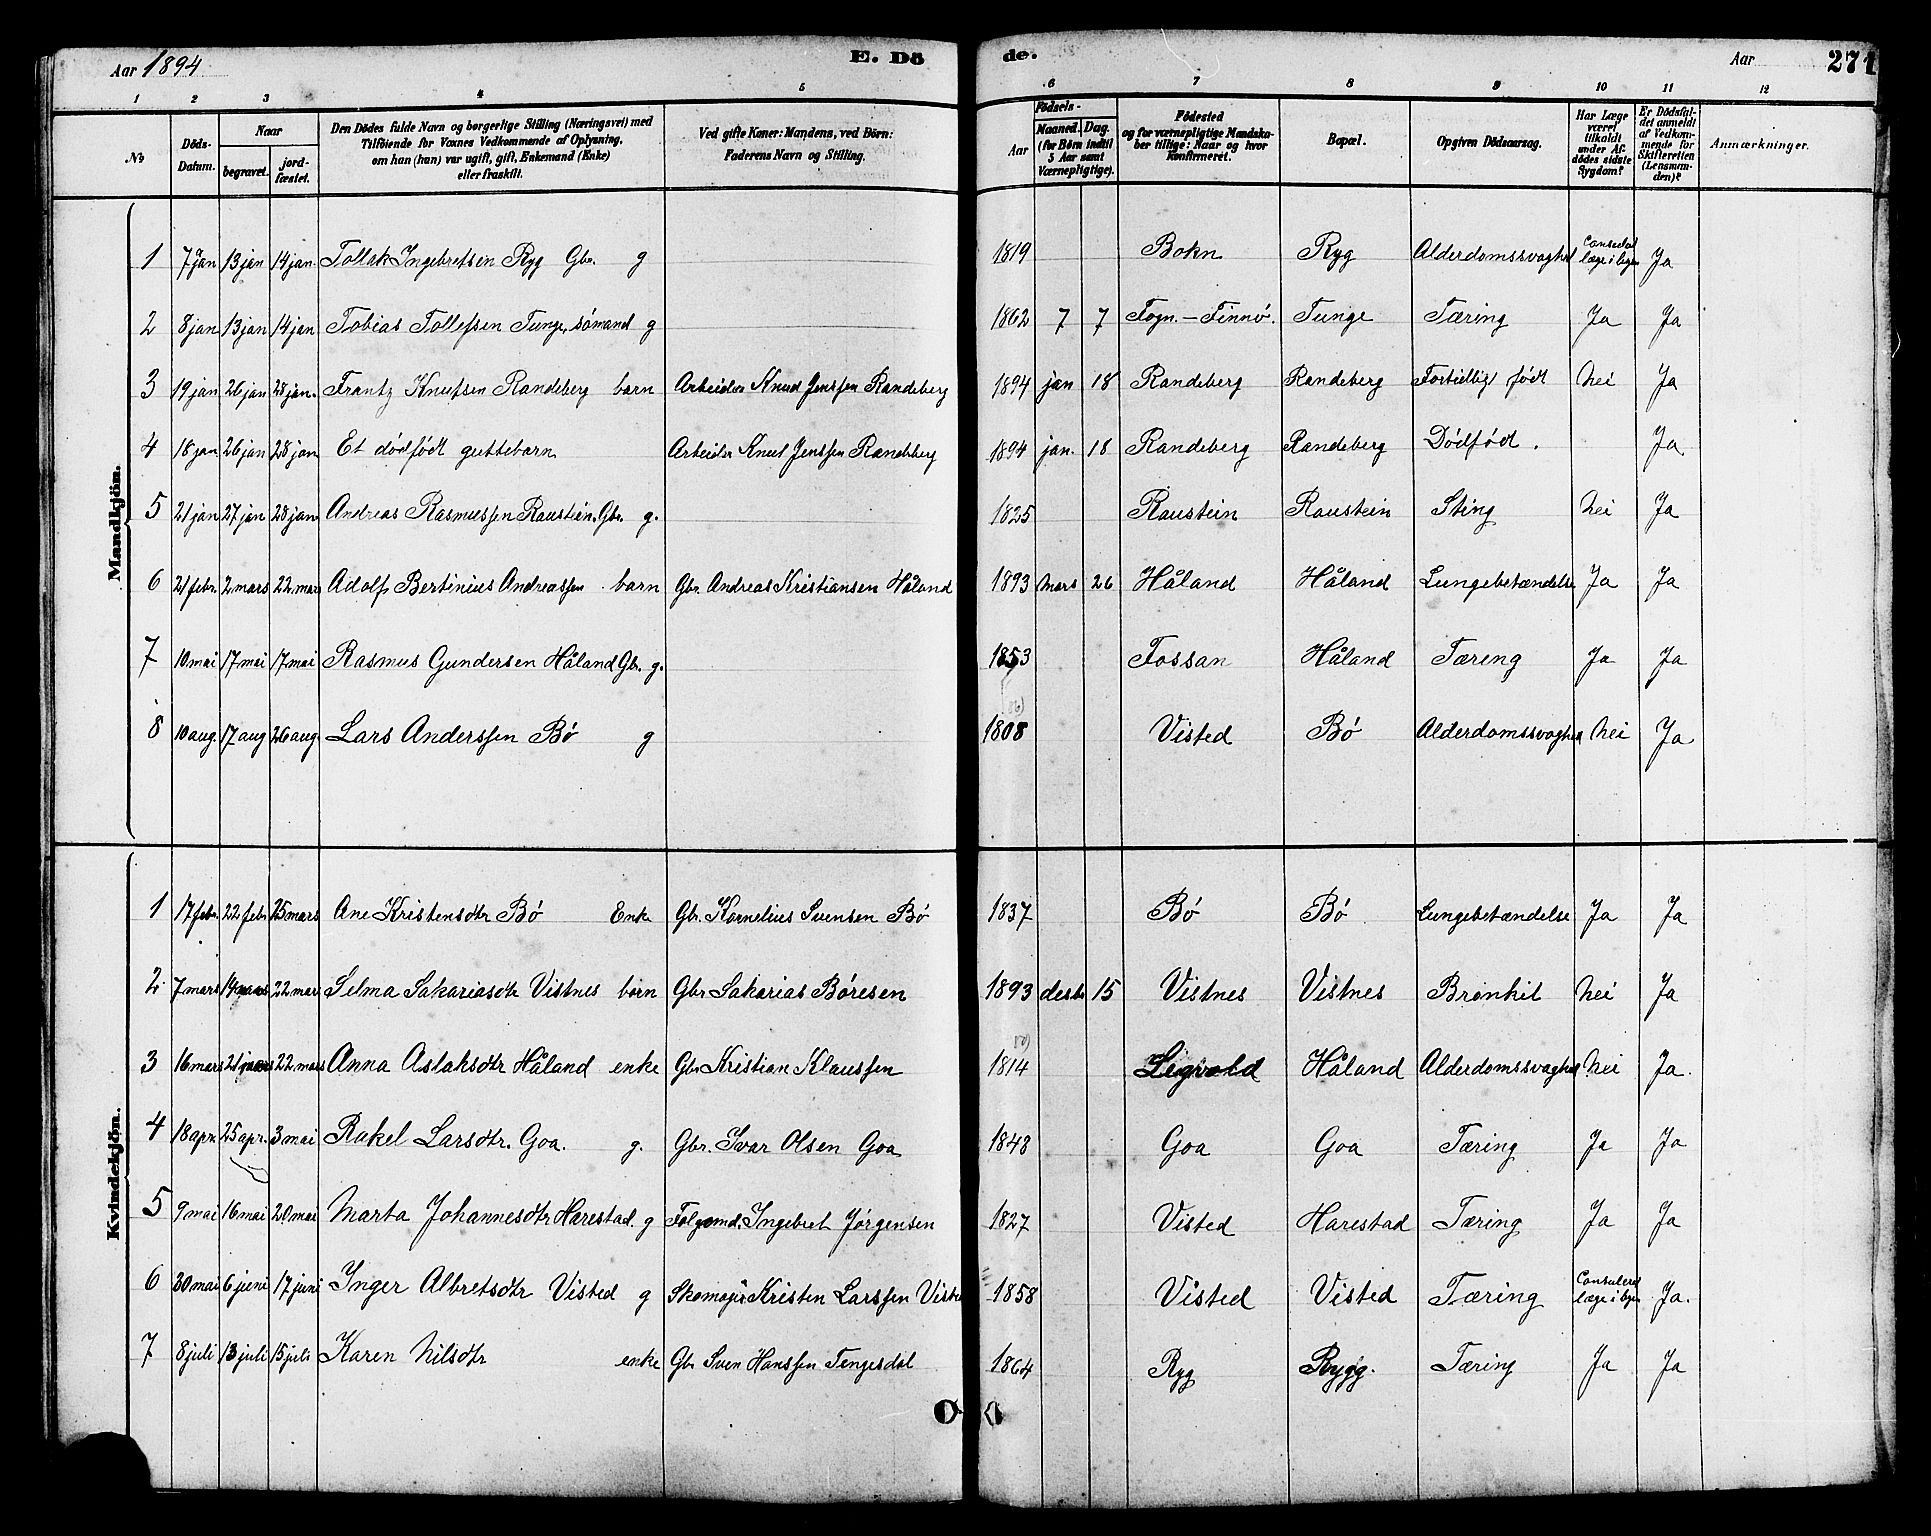 Aar 1894. E. Dö de. Aar 271
1 2 3 4 5 6 7 8 9 10 11 12
No Döds-Datum. Naar begravet. jordfæstet. Den Dödes fulde Navn og borgerlige Stilling (Næringsvei) med Tilföiende for Voxnes Vedkommende af Oplysning, om han (hun) var ugift, gift, Enkemand (Enke) eller fraskilt. Ved gifte Koner: Mandens, ved Börn: Faderens Navn og Stilling. Aar Födsels- Maaned. Dag. (for Börn indtil 5 Aar samt Værnepligtige). Födested og for værnepligtige Mandskaber tillige: Naar og hvor konfirmeret. Bopæl. Opgiven Dödsaarsag. Har Læge været tilkaldt under Afdödes sidste Sygdom? Er Dödsfaldet anmeldt af Vedkommende for Skifteretten (Lensmanden)? Anmærkninger.
Mandkjön.
1 7 jan 13 jan 14 jan. Ingebretsen Ryg Gbr. g 1819 Bokn Ryg Alderdomssvaghed læge i byen Ja
2 8 jan 13 jan 14 jan Tobias Tollefsen Tunge, sömand g 1862 7 7 Fogn - Finnö. Tunge Tæring Ja Ja
3 19 jan 26 jan 28 jan. Frantz Knutsen Randeberg barn Arbeider Knud Jenssen Randeberg 1894 jan 18 Randeberg Randeberg Fortidlig födt Nei Ja
4 18 jan 26 jan 28 jan Et dödfödt guttebarn Arbeider Knut Jenssen Randeberg 1894 jan. 18 Randeberg Randeberg Dödföd. Ja
5 21 jan 27 jan 28 jan Andreas Rasmussen Raustein. Gbr. g. 1825 Raustein Raustein Sting Nei Ja
6 21 febr. 2 mars 22 mars Adolf Bertinius Andreassen barn Gbr. Andreas Kristiansen Håland 1893 Mars 26 Håland Håland Lungebetændelse Ja Ja
7 10 mai 17 mai 17 mai Rasmus Gundersen Håland Gbr. g. 1853 Fossan Håland Tæring Ja Ja
8 10 aug. 17 aug 26 aug. Lars Anderssen Bö g 1808 Visted Bö Alderdomssvaghed Nei Ja
Kvindekjön.
1 17 febr. 22 febr 25 mars Ane Kristensdtr Bö Enke Gbr. Kornelius Svensen Bö 1837 Bö Bö Lungebetændelse Ja Ja
2 7 mars 14 mars 22 mar Selma Sakariasdtr Vistnes barn Gbr Sakarias Böresen 1893 desbr 15 Vistnes Vistnes Bronkit Nei Ja
3 16 mars 21 mars 22 mars Anna Aslaksdtr Håland enke Gbr Kristian Klaussen 1814 Håland Alderdomssvaghed Nei Ja.
4 18 apr. 25 apr. 3 mai Rakel Larsdtr. Goa. g. Gbr. Ivar Olsen Goa 1848 Goa Goa Tæring Ja Ja
5 9 mai 16 mai 20 mai Marta Johannesdtr Harestad. g Folgemd. Ingebret Jörgensen 1827 Visted Harestad Tæring Ja Ja
6 30 mai 6 juni 17 juni Inger Albretsdtr Visted g Skomager Kristen Larssen Visted 1858 Visted Visted Tæring Consuleret læge i byen Ja.
7 8 juli 13 juli 15 juli Karen Nilsdtr enke Gbr Sven Hanssen Tengesdal 1864 Ryg Rygg. Tæring Ja Ja